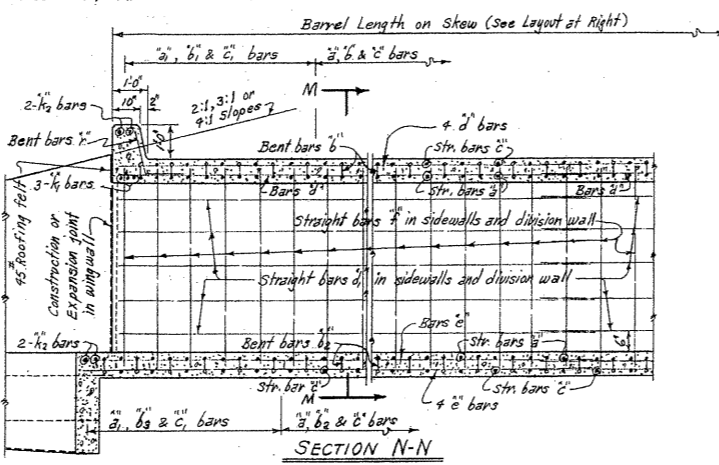 Barrel Length on Skew (See Layout at Right)
"a₁", "b₁" & "c₁" bars
"a", "b" & "c" bars
1'-0"
10" 2"
M
2:1, 3:1 or
4:1 Slopes
2-"k₂" bars
1'-0"
4 "d" bars
Bent bars "r"
Bent bars "b"
Str. bars "c"
3-"k₁" bars
Bars "d"
Str. bars "a"
Bars "d"
45# Roofing felt
Construction or
Expansion joint
in wing wall
Straight bars "f" in sidewalls and division wall
Straight bars "d₁" in sidewalls and division wall
2-"k₂" bars
Bent bars "b₂"
Bars "e"
Str. bars "a"
6"
Str. bar "c"
M
Str. bars "c"
4 "e" bars
"a₁", "b₃" & "c₁" bars
"a", "b₂" & "c" bars
SECTION N-N